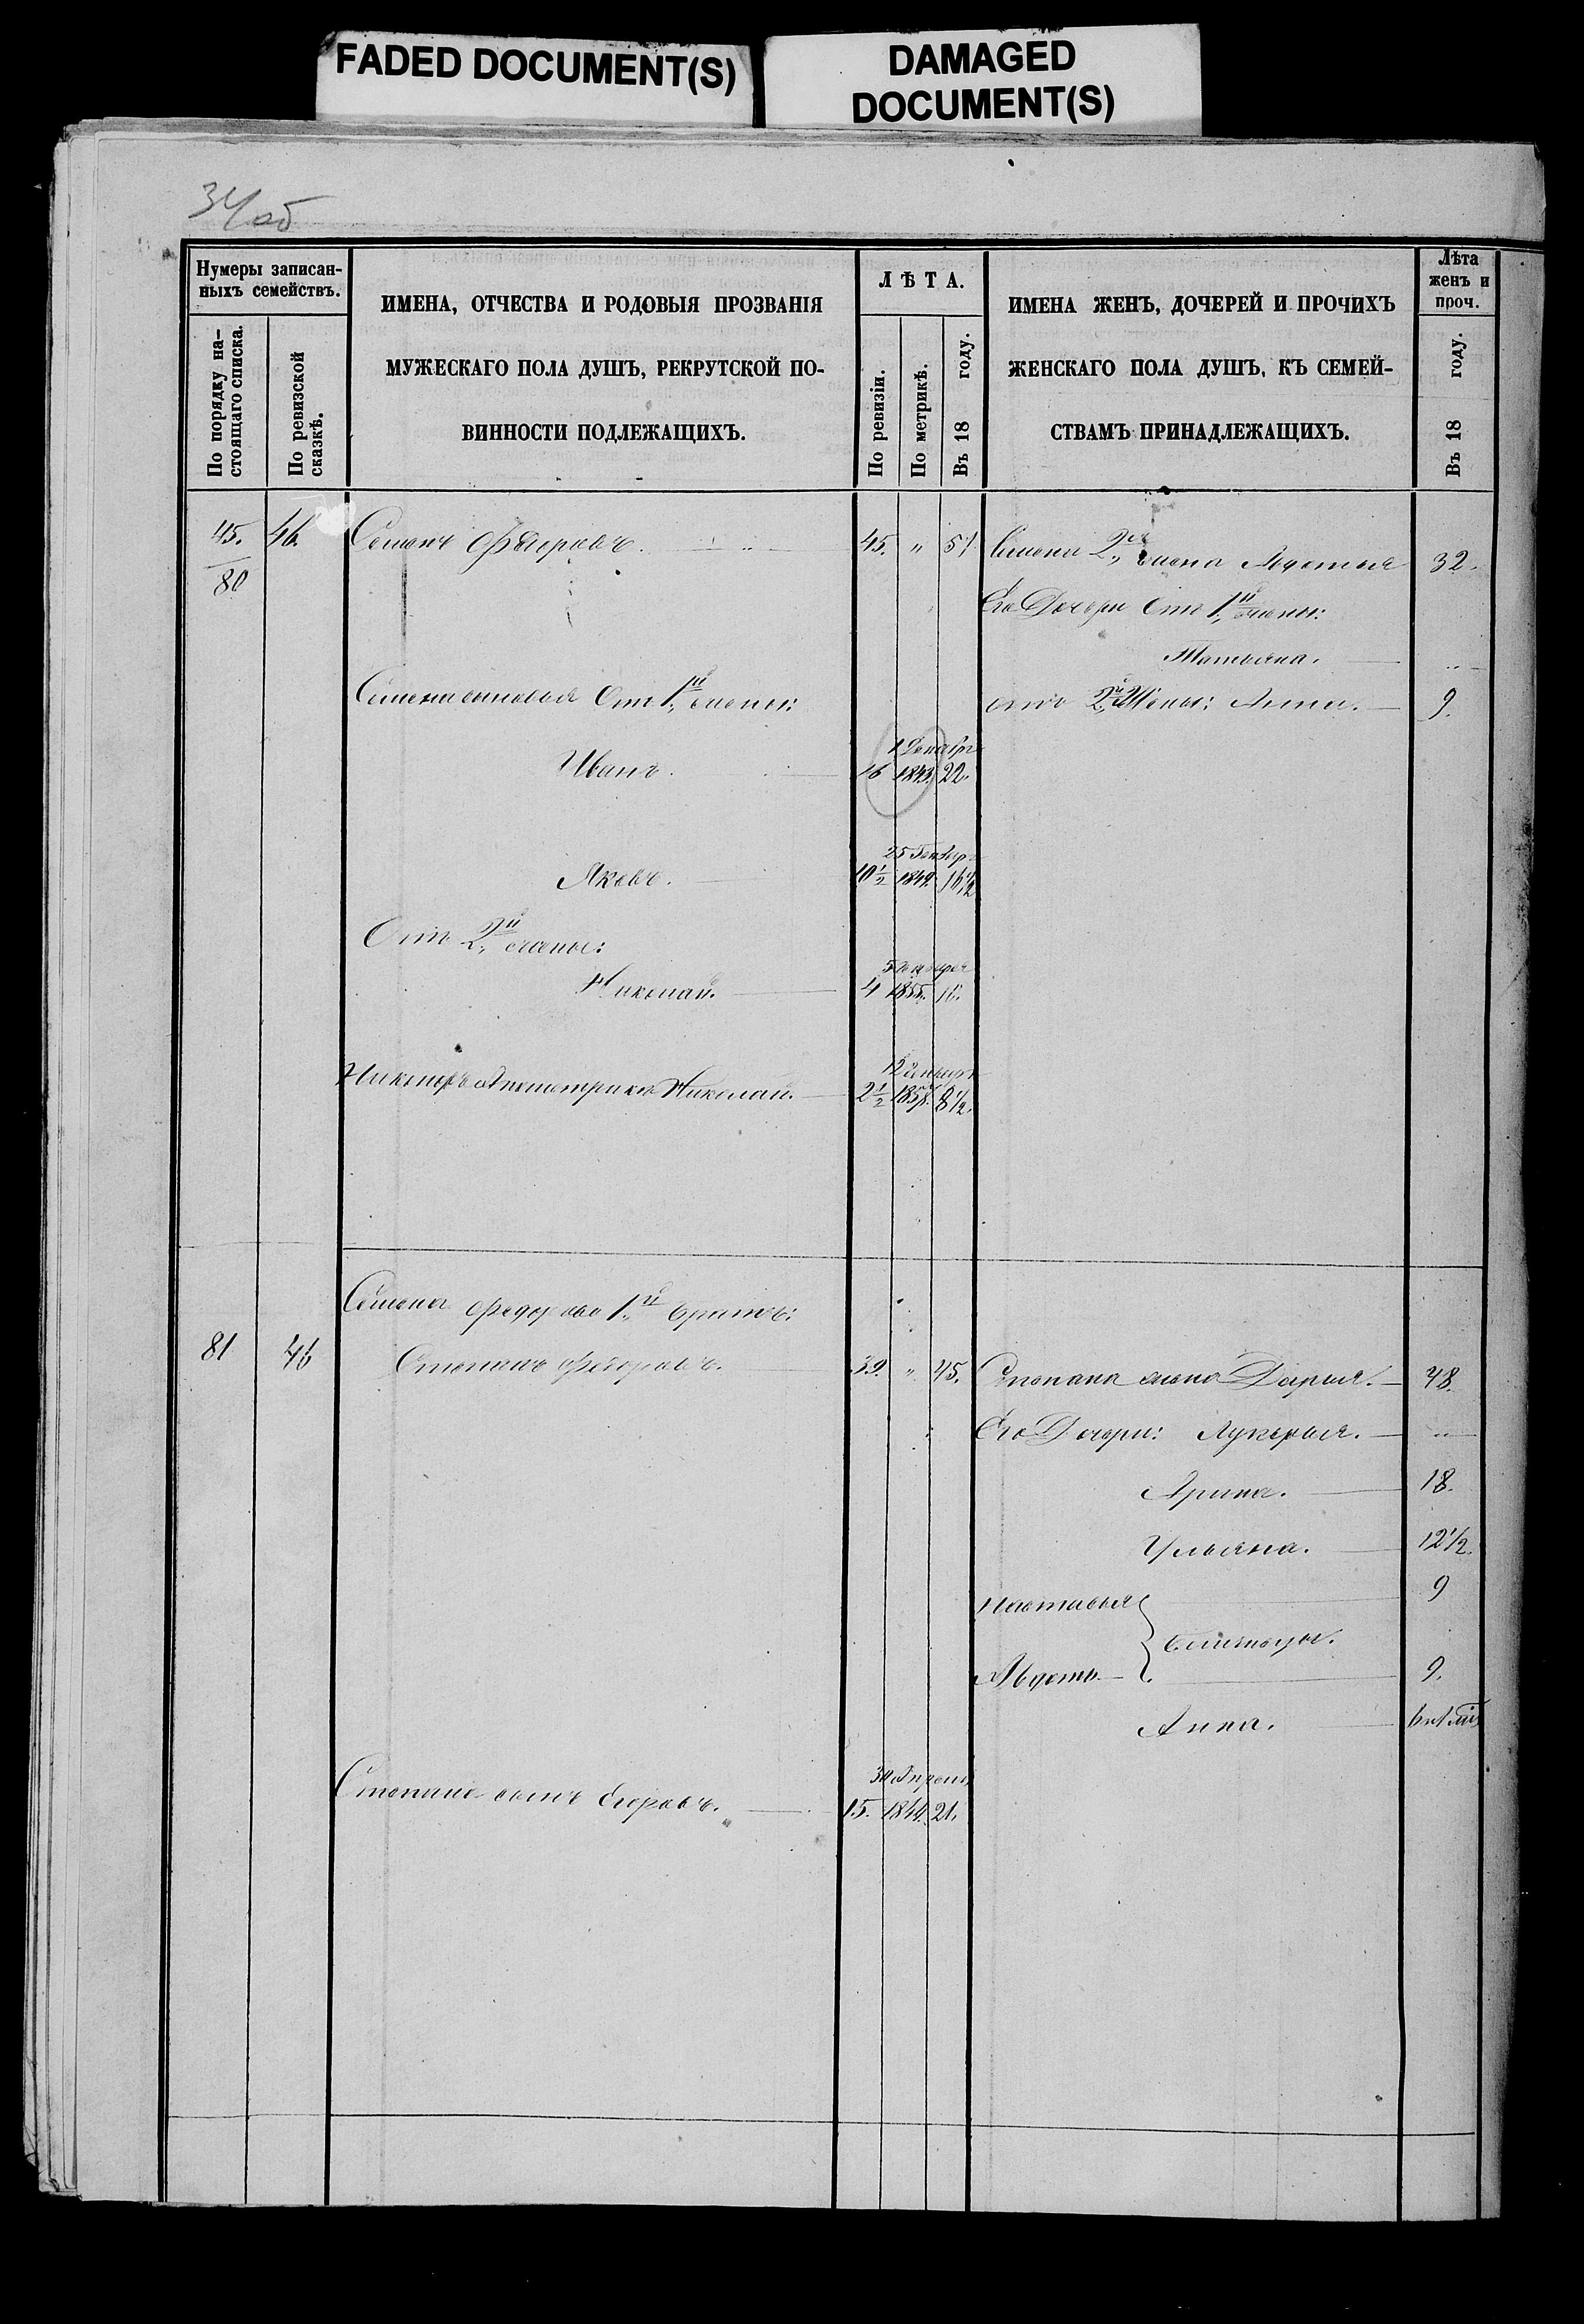 FADED DOCUMENT(S)
DAMAGED
DOCUMENT(S)
34 об
Нумеры записан-
ныхъ семействъ.
По порядку на-
стоящаго списка.
По ревизской
сказкѣ.
ИМЕНА, ОТЧЕСТВА И РОДОВЫЯ ПРОЗВАНІЯ
МУЖЕСКАГО ПОЛА ДУШЪ, РЕКРУТСКОЙ ПО-
ВИННОСТИ ПОДЛЕЖАЩИХЪ.
ЛѢТА.
По ревизіи.
По метрикѣ.
Въ 18 году.
ИМЕНА ЖЕНЪ, ДОЧЕРЕЙ И ПРОЧИХЪ
ЖЕНСКАГО ПОЛА ДУШЪ, КЪ СЕМЕЙ-
СТВАМЪ ПРИНАДЛЕЖАЩИХЪ.
Лѣта
женъ и
проч.
Въ 18 году.
45. 46. Семенъ Федоровъ. 45. " 51 Семена 2ая жена Авдотья 32.
80
Его Дочери Отъ 1й жены:
Татьяна. "
Семена сыновья Отъ 1й жены: отъ 2й Жены: Анна. 9.
1 Декабря
Иванъ. 16 1843. 22.
25 Генваря
Яковъ. 10½ 1849. 16½
Отъ 2й жены:
Николай. 4 1855.
12
Никифоръ а по метрике Николай. 2½ 8½.
Семена Федорова 1й братъ:
81 46 Степанъ Федоровъ. 39. " 45. Степана жена Дарья. 48.
Его Дочери: Лукерья. "
Арина. 18.
Ульяна. 12½.
Настасья 9
близнецы.
Авдоть 9.
Анна.
30 Апреля
Степана сынъ Егоръ. 15. 1844. 21.